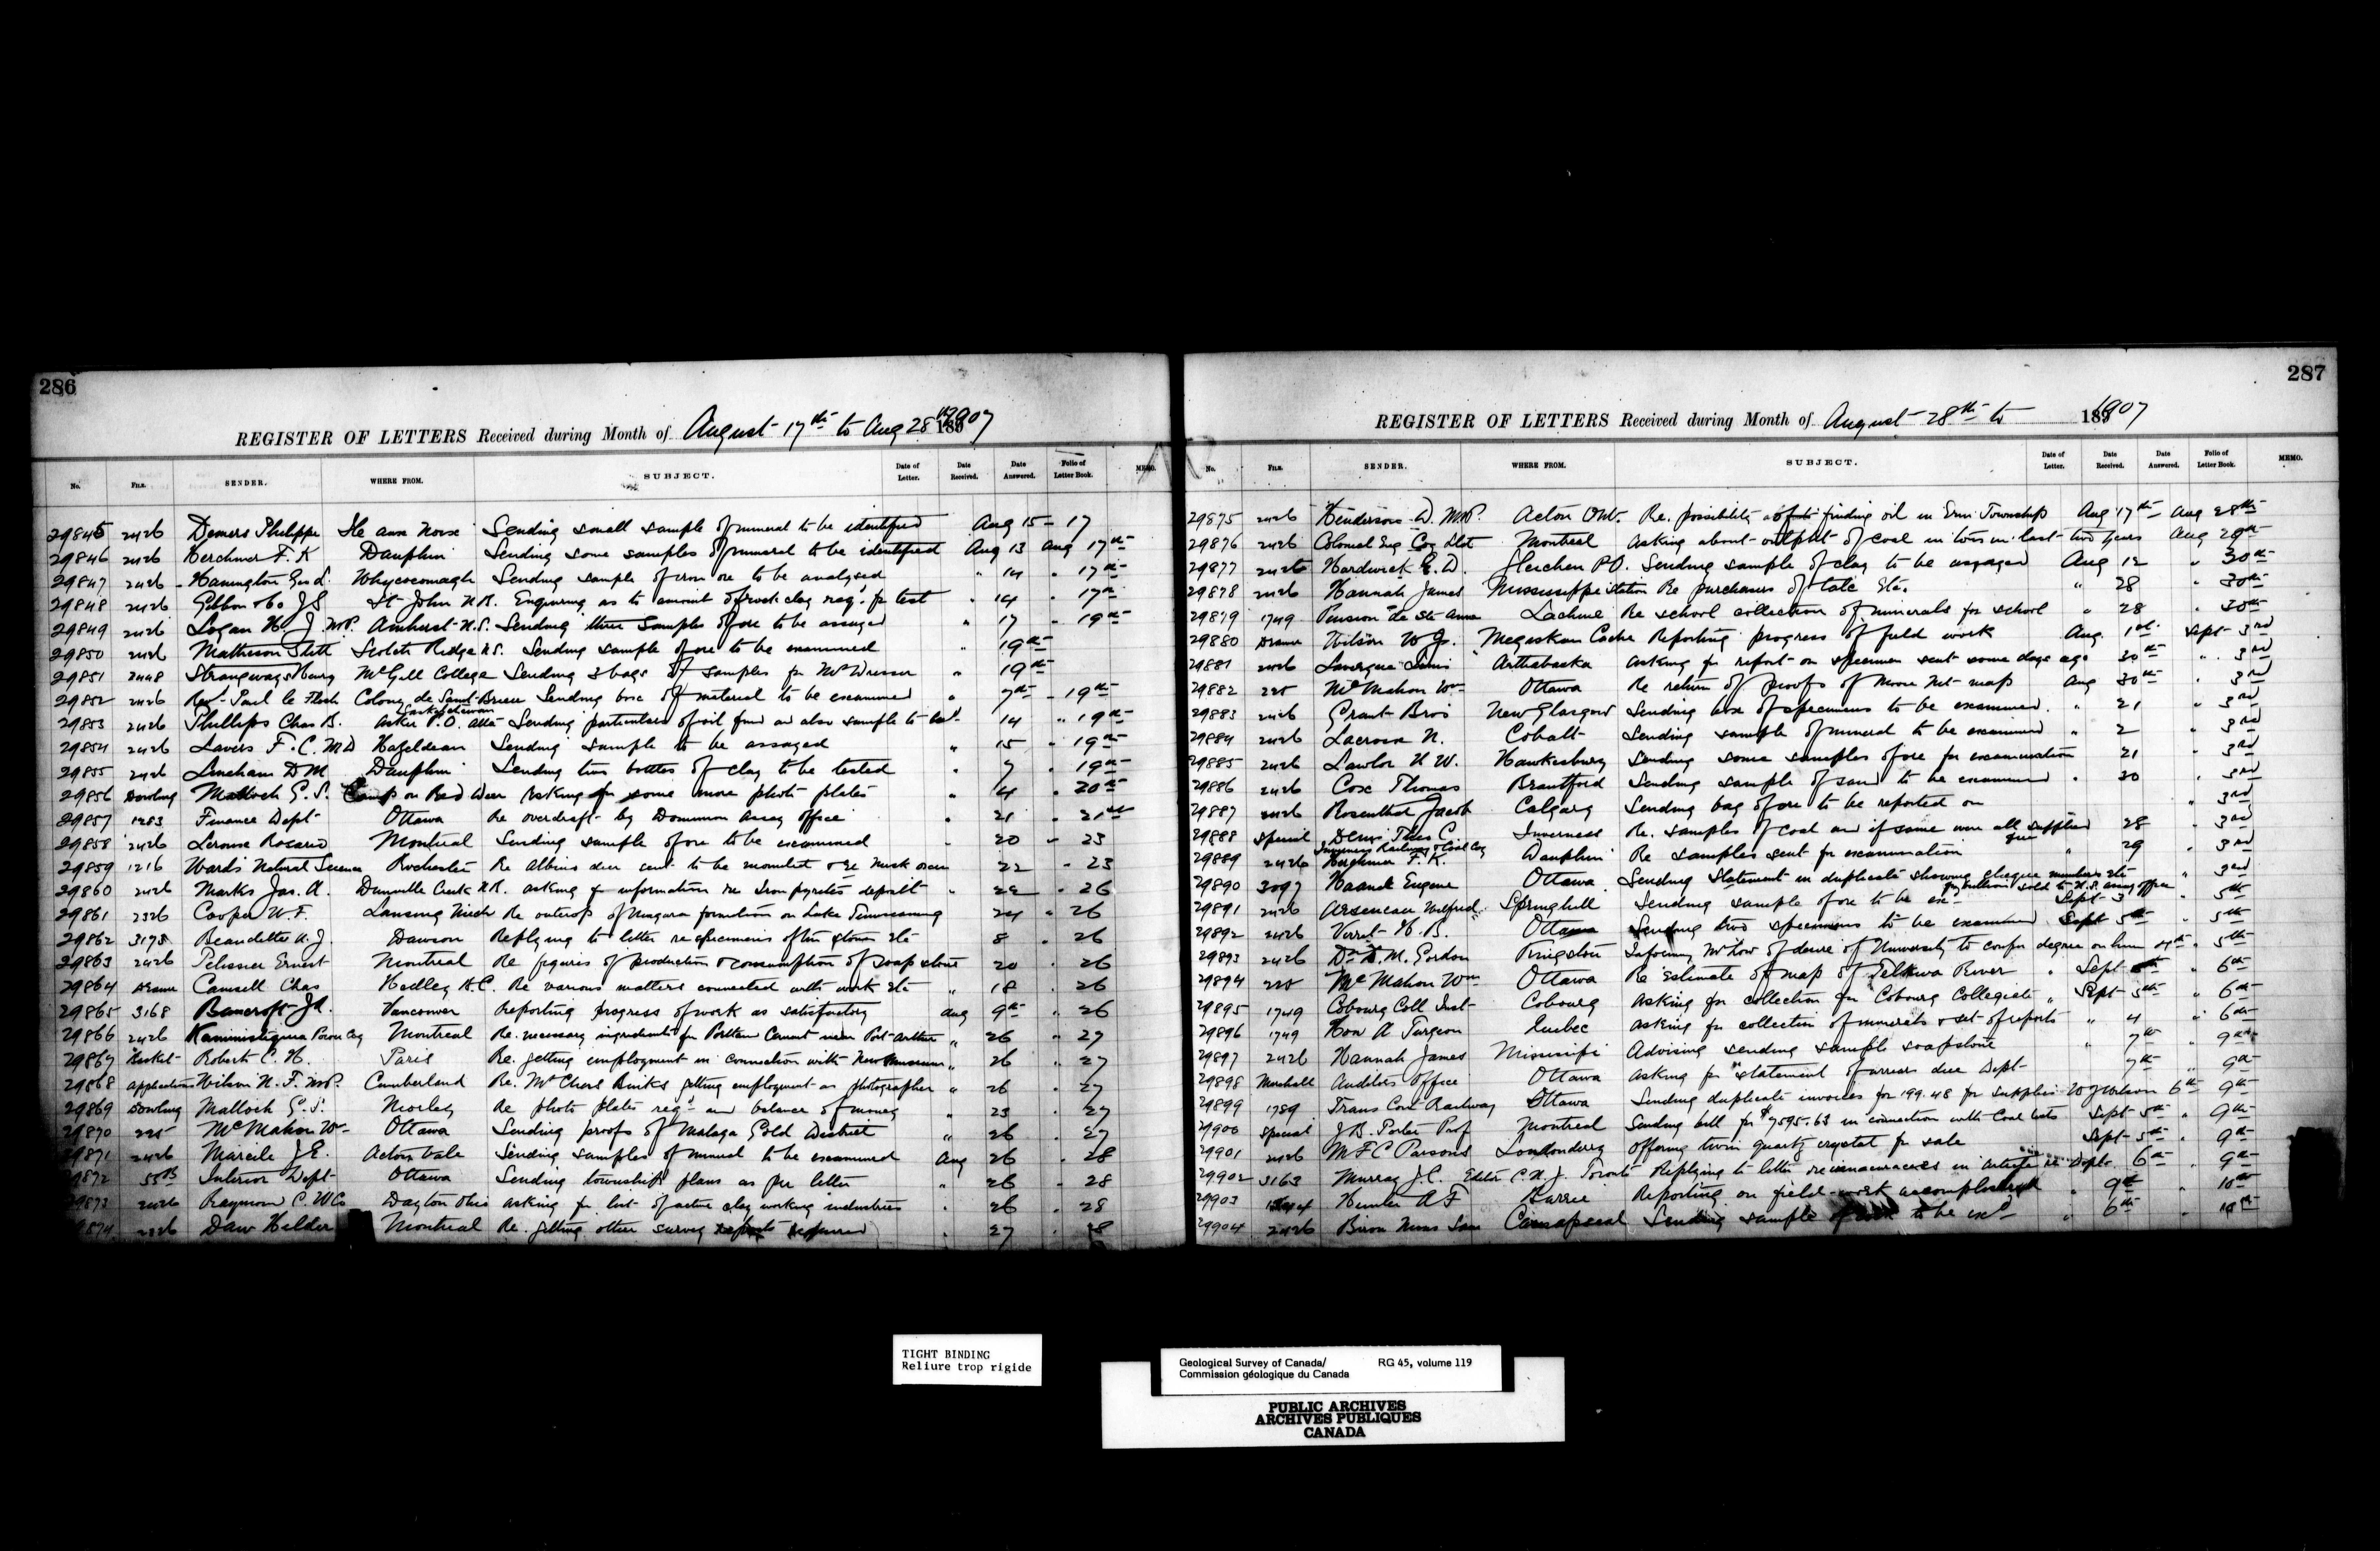 286
REGISTER OF LETTERS Received during Month of August 17th to Aug 28th 1907
No. FILE. SENDER. WHERE FROM. SUBJECT. Date of Letter. Date Received. Date Answered. Folio of Letter Book. MEMO.
29845 2426 Demers Philippe Ste anne Sending small sample of mineral to be identified Aug 15 - 17
29846 2426 Herchmer F. K Dauphin Sending some samples of mineral to be identified Aug 13 Aug 17th
29847 2426 Hanington Whycocomagh Sending sample of iron ore to be analysed " 14 " 17th
29848 2426 Gibbon & Co J S St John N.B. Enquiring as to amount of rock clay req'd for test " 14 " 17th
29849 2426 Logan H. J. M.P. Amherst N.S. Sending three samples of ore to be assayed " 17 " 19th
29850 2426 Matheson Ridge N.S. Sending sample of ore to be examined " 19th
29851 2448 Strangways Harry McGill College Sending 3 bags of samples for Mr Dresser " 19th
29852 2426 Rev. Paul le Floch Colony de Saint Brieux Saskatchewan Sending box of material to be examined " 7th - 19th
29853 2426 Phillips Chas B. Asker P.O. Alta Sending particulars of oil find and also sample to test 14 " 19th
29854 2426 Lavers F. C. M D Hazeldean Sending sample to be assayed " 15 " 19th
29855 2426 Lineham D M Dauphin Sending two bottles of clay to be tested " 7 " 19th
29856 Dowling Malloch G. S. Camp on Red Deer Asking for some more photo plates " 4 " 20th
29857 1283 Finance Dept Ottawa Re overdraft by Dominion Assay Office " 21 " 21st
29858 2426 Lerouse Rosario Montreal Sending sample of ore to be examined " 20 " 23
29859 1216 Ward's Natural Science Rochester Re albino deer sent to be mounted & re musk oxen 22 " 23
29860 2426 Marks Jas. A. Creek N.B. asking for information re iron pyrites deposit " 22 " 26
29861 2326 Cooper W. F. Lansing Mich Re outcrop of Niagara formation on Lake Temiscaming 24 " 26
29862 3178 Beaudette A. J. Dawson Replying to letter re specimens of tin stone etc 8 " 26
29863 2426 Pelissier Ernest Montreal Re figures of production & consumption of soap stone 20 " 26
29864 Drawer Camsell Chas Hedley B.C. Re various matters connected with work etc " 18 " 26
29865 3168 Bancroft J A. Vancouver reporting progress of work as satisfactory Aug 9th " 26
29866 2426 Kaministiquia Power Coy Montreal Re. necessary ingredients for Portland Cement near Port Arthur " 26 " 27
29867 Roberts C. H. Paris Re. getting employment in connection with New Museum " 26 " 27
29868 application Wilson N. F. M.P. Cumberland Re. Mr Chas Binks getting employment as photographer " 26 " 27
29869 Dowling Malloch G. S. Morley Re photo plates req'd and balance of money " 23 " 27
29870 225 McMahon Wm Ottawa Sending proofs of Malaga Gold District " 26 " 27
29871 2426 Marcile J. E. Acton Vale Sending samples of mineral to be examined Aug 26 " 28
29872 55B Interior Dept Ottawa Sending township plans as per letter " 26 " 28
29873 2426 Raymond C. W Co Dayton Ohio asking for list of active clay working industries " 26 " 28
29874 2326 Daw Hilder Montreal Re. getting other survey reports referred " 27 " 28
287
REGISTER OF LETTERS Received during Month of August 28th to 1907
No. FILE. SENDER. WHERE FROM. SUBJECT. Date of Letter. Date Received. Date Answered. Folio of Letter Book. MEMO.
29875 2426 Henderson D. M.P. Acton Ont. Re. possibility of finding oil in Erin Township Aug 17th Aug 28th
29876 2426 Colonial Eng Coy Ltd Montreal asking about output of coal in tons in last two years Aug 29th
29877 2426 Hardwick E. D. Gleichen P.O. Sending sample of clay to be assayed Aug 12 " 30th
29878 2426 Hannah James Mississippi Station Re purchasers of talc etc. " 28 " 30th
29879 1749 Pension de Ste Anne Lachine Re school collection of minerals for school " 28 " 30th
29880 Drawer Wilson W J. Megiskan Cache Reporting progress of field work Aug. 1st Sept 3rd
29881 2426 Lavergne Louis Arthabaska asking for report on specimen sent some days ago 30th " 3rd
29882 225 McMahon Wm Ottawa Re return of proofs of Moose Mt map Aug 30th " 3rd
29883 2426 Grant Bros New Glasgow Sending box of specimens to be examined. " 21 " 3rd
29884 2426 Lacrosse N. Cobalt Sending sample of mineral to be examined " 2 " 3rd
29885 2426 Lawlor H W. Hawkesbury Sending some samples of ore for examination 21 " 3rd
29886 2426 Cox Thomas Brantford Sending sample of sand to be examined " 30 " 3rd
29887 2426 Rosenthal Jacob Calgary Sending bag of ore to be reported on " 3rd
29888 Special Denis Theo C. Inverness Railway & Coal Coy Inverness Re. samples of coal and if same were all supplied free 28 " 3rd
29889 2426 Herchmer F. K. Dauphin Re samples sent for examination " 29 " 3rd
29890 3097 Haanel Eugene Ottawa Sending statement in duplicate showing cheque numbers etc for bullion sold to U.S. assay office " 3rd
29891 2426 Arseneau Wilfred Springhill Sending sample of ore to be ex'd Sept 3 " 5th
29892 2426 Verret H. B. Ottawa Sending two specimens to be examined Sept 5th " 5th
29893 2426 Dr D. M. Gordon Kingston Informing Mr Low of desire of University to confer degree on him 4th " 5th
29894 225 McMahon Wm Ottawa Re Estimate of map of Telkwa River " Sept " 6th
29895 1749 Cobourg Coll Inst Cobourg asking for collection for Cobourg Collegiate " Sept 5th " 6th
29896 1749 Hon A Turgeon Quebec asking for collection of minerals & set of reports " 4 " 6th
29897 2426 Hannah James Missisipi Advising sending sample soapstone " 7th " 9th
29898 Marshall Auditors Office Ottawa asking for statement of arrears due Dept 7th " 9th
29899 1789 Trans Con Railway Ottawa Sending duplicate invoices for 199.48 for supplies W J Wilson 6th " 9th
29900 Special J B. Porter Prof Montreal Sending bill for $7595.63 in connection with Coal tests Sept 5th " 9th
29901 2426 W F C Parsons Londonderry offering twin quartz crystal for sale Sept 5th " 9th
29902 3163 Murray J. C. Editor C. M. J. Toronto Replying to letter re inaccuracies in article re Dept. 6th " 9th
29903 Hunter A F Barrie Reporting on field work accomplished " 9th " 10th
29904 2426 Sending sample of to be ex'd " 6th " 10th
TIGHT BINDING
Reliure trop rigide
Geological Survey of Canada/ RG 45, volume 119
Commission géologique du Canada
PUBLIC ARCHIVES
ARCHIVES PUBLIQUES
CANADA